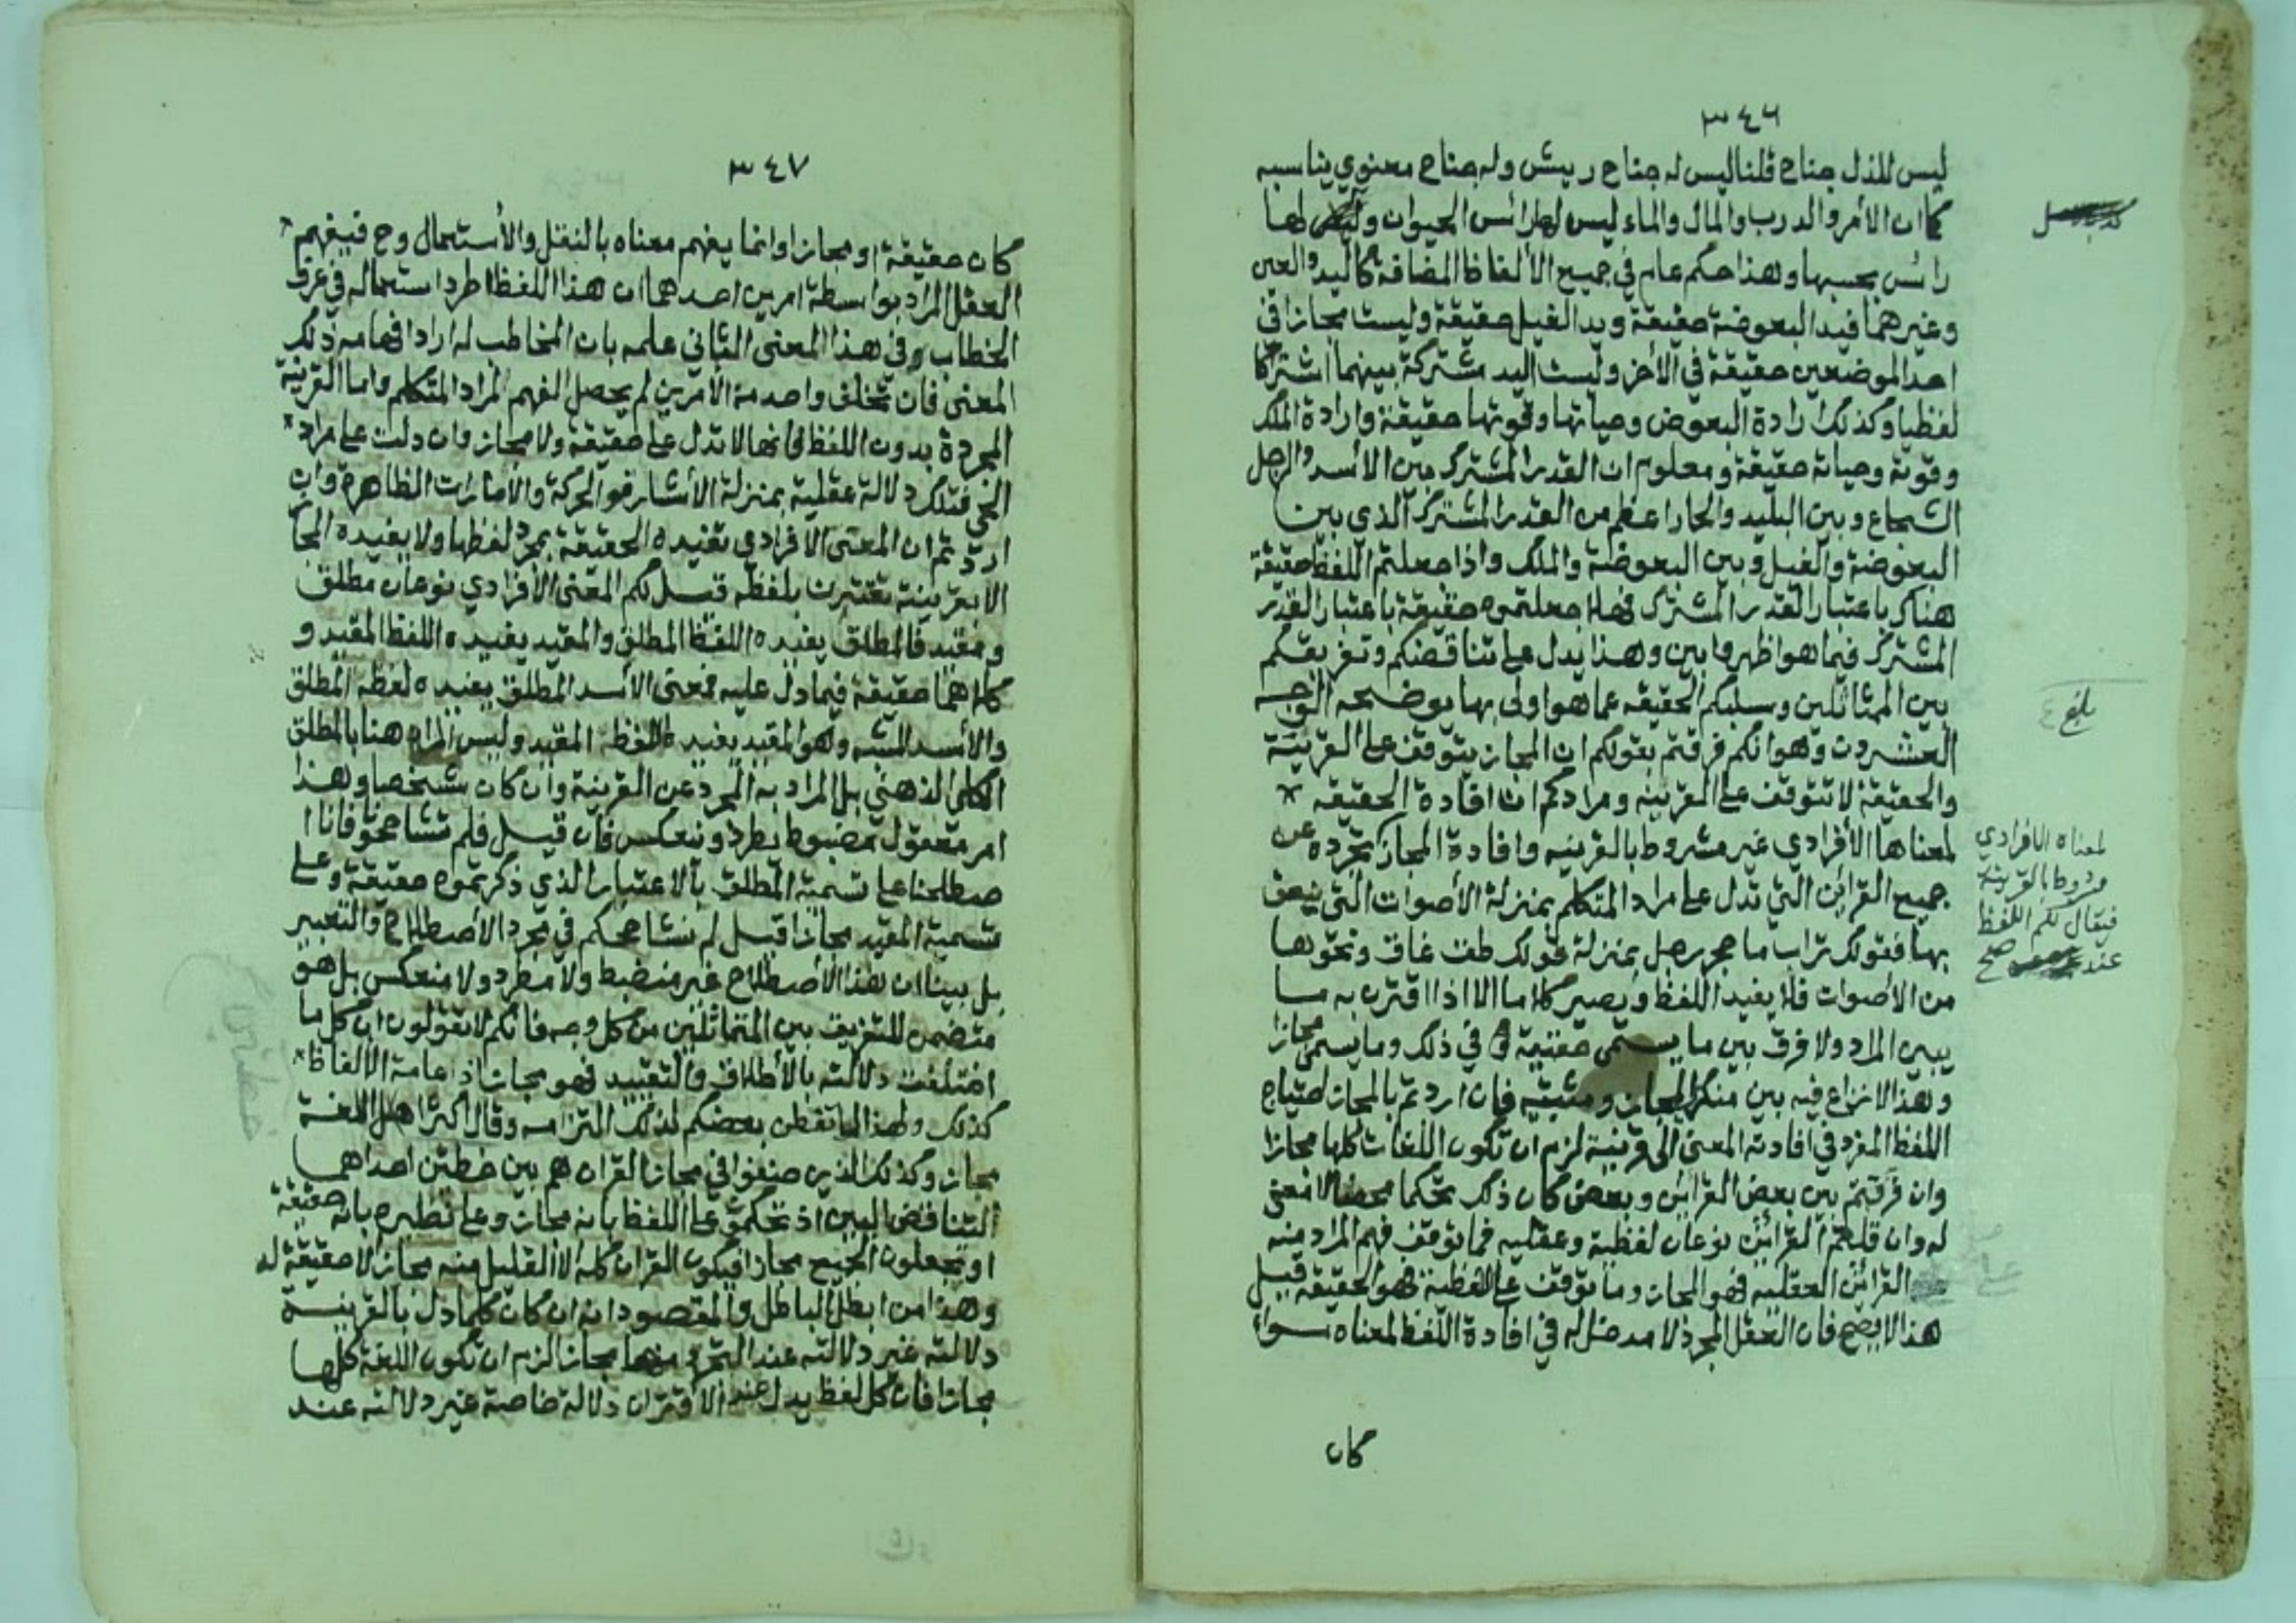 ٣٤٦
ليس للذل جناح قلنا ليس له جناح ريش وله جناح معنوي يناسبه
كما ان الأمر والدرب والمال والماء ليس لها رائس الحيوان ولها
رائس بحسبها وهذا حكم عام في جميع الألفاظ المضافة كاليد والعين
وغيرهما فيد البعوضة حقيقة ويد الفيل حقيقة وليست مجازا في
احد الموضعين حقيقة في الأخر وليست اليد مشتركة بينهما اشتراكا
لفظيا وكذلك ارادة البعوض وحياتها وقوتها حقيقة وارادة الملك
وقوته وحياته حقيقة ومعلوم ان القدر المشترك بين الأسد والرجل
الشجاع وبين البليد والحمار اعظم من القدر المشترك الذي بين
البعوضة والفيل وبين البعوضة والملك واذا جعلتم اللفظ حقيقة
هناك باعتبار القدر المشترك فهلا جعلتموه حقيقة باعتبار القدر
المشترك فيما هو اظهر وابين وهذا يدل على تناقضكم وتفريقكم
بين المتماثلين وسلبكم الحقيقه عما هو اولى بها يوضحه الوجه
العشرون وهو انكم فرقتم بقولكم ان المجاز يتوقف على القرينة
والحقيقة لا تتوقف على القرينه ومرادكم ان افادة الحقيقه
لمعناها الأفرادي غير مشروط بالقرينه وافادة المجاز تجرده عن
جميع القرائن التي تدل على مراد المتكلم بمنزلة الأصوات التي ينعق
بها فقولك تراب ما حجر رجل بمنزلة قولك طق غاق ونحوها
من الأصوات فلا يفيد اللفظ ويصير كلاما الا اذا اقترن به ما
يبين المراد ولا فرق بين ما يسمى حقيقة في ذلك وما يسمى مجازا
وهذا لا نزاع فيه بين منكر المجاز ومثبتيه فان اردتم بالمجاز احتياج
اللفظ المفرد في افادته المعنى الى قرينة لزم ان تكون اللغات كلها مجازا
وان فرقتم بين بعض القرائن وبعض كان ذلك تحكما محضا لا معنى
له وان قلتم القرائن نوعان لفظية وعقليه فما توقف فهم المراد منه
على القرائن العقليه فهو المجاز وما توقف على اللفظية فهو الحقيقة قيل
هذا لا يصح فان العقل المجرد لا مدخل له في افادة اللفظ لمعناه سواء
كان
بلغ
لمعناه الافرادي
مشروط بالقرينة
فيقال لكم اللفظ
عند صح
٣٤٧
كان حقيقة او مجازا وانما يفهم معناه بالنقل والأستعمال وح فيفهم
العقل المراد بواسطة امرين احدهما ان هذا اللفظ اطرد استعماله في عرف
الخطاب في هذا المعنى الثاني علمه بان المخاطب له اراد افهامه ذلك
المعنى فان تخلف واحد من الأمرين لم يحصل الفهم لمراد المتكلم واما القرينة
المجردة بدون اللفظ فانها لا تدل على حقيقة ولا مجاز وان دلت على مراد
الحي فتلك دلالة عقلية بمنزلة الأشارة والحركة والأمارات الظاهرة وان
اردتم ان المعنى الأفرادي تفيده الحقيقة بمجرد لفظها ولا يفيده المجا
الا بقرينة تقترن بلفظه قيل لكم المعنى الأفرادي نوعان مطلق
ومقيد فالمطلق يفيده اللفظ المطلق والمقيد يفيده اللفظ المقيد و
كلاهما حقيقة فيما دل عليه فمعنى الأسد المطلق يفيده لفظه المطلق
والأسد المشبه وهو المقيد يفيده اللفظ المقيد وليس المراد هنا بالمطلق
الكلي الذهني بل المراد به المجرد عن القرينة وان كان شخصا وهذا
امر معقول مضبوط يطرد وينعكس فان قيل فلم تشاححونا فانا ا
صطلحنا على تسمية المطلق بالاعتبار الذي ذكرتموه حقيقة وعلى
تسمية المقيد مجازا قيل لم نشاححكم في مجرد الأصطلاح والتعبير
بل بينا ان هذا الأصطلاح غير منضبط ولا مطرد ولا منعكس بل هو
متضمن للتفريق بين المتماثلين من كل وجه فانكم لا تقولون ان كل ما
اختلفت دلالته بالأطلاق والتقييد فهو مجاز اذ عامة الألفاظ
كذلك ولهذا لما تفطن بعضكم لذلك التزامه وقال اكثر اهل اللغة
مجاز وكذلك الذين صنفوا في مجاز القران هم بين خطتين احداهما
التناقض البين اذ تحكمو على اللفظ بانه مجاز وعلى نظيره بانه حقيقة
او يجعلون الجميع مجازا فيكون القران كله الا القليل منه مجاز لا حقيقة له
وهذا من ابطل الباطل والمقصود انه ان كان كلما دل بالقرينة
دلالته غير دلالته عند التجرد منها مجازا لزم ان تكون اللغة كلها
مجازا فان كل لفظ يدل عند الأقتران دلالة خاصة غير دلالته عند